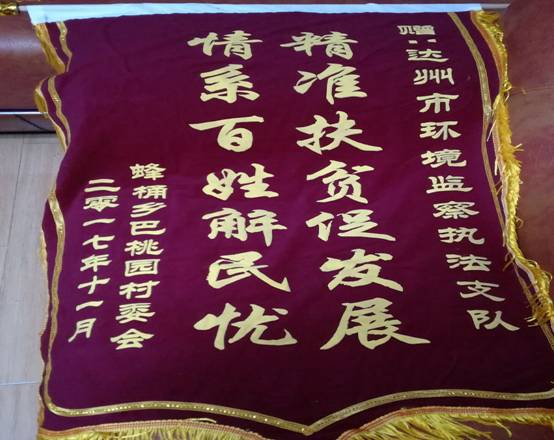 赠:达州市环境监察执法支队
精准扶贫促发展
情系百姓解民忧
蜂桶乡巴桃园村委会
二零一七年十一月